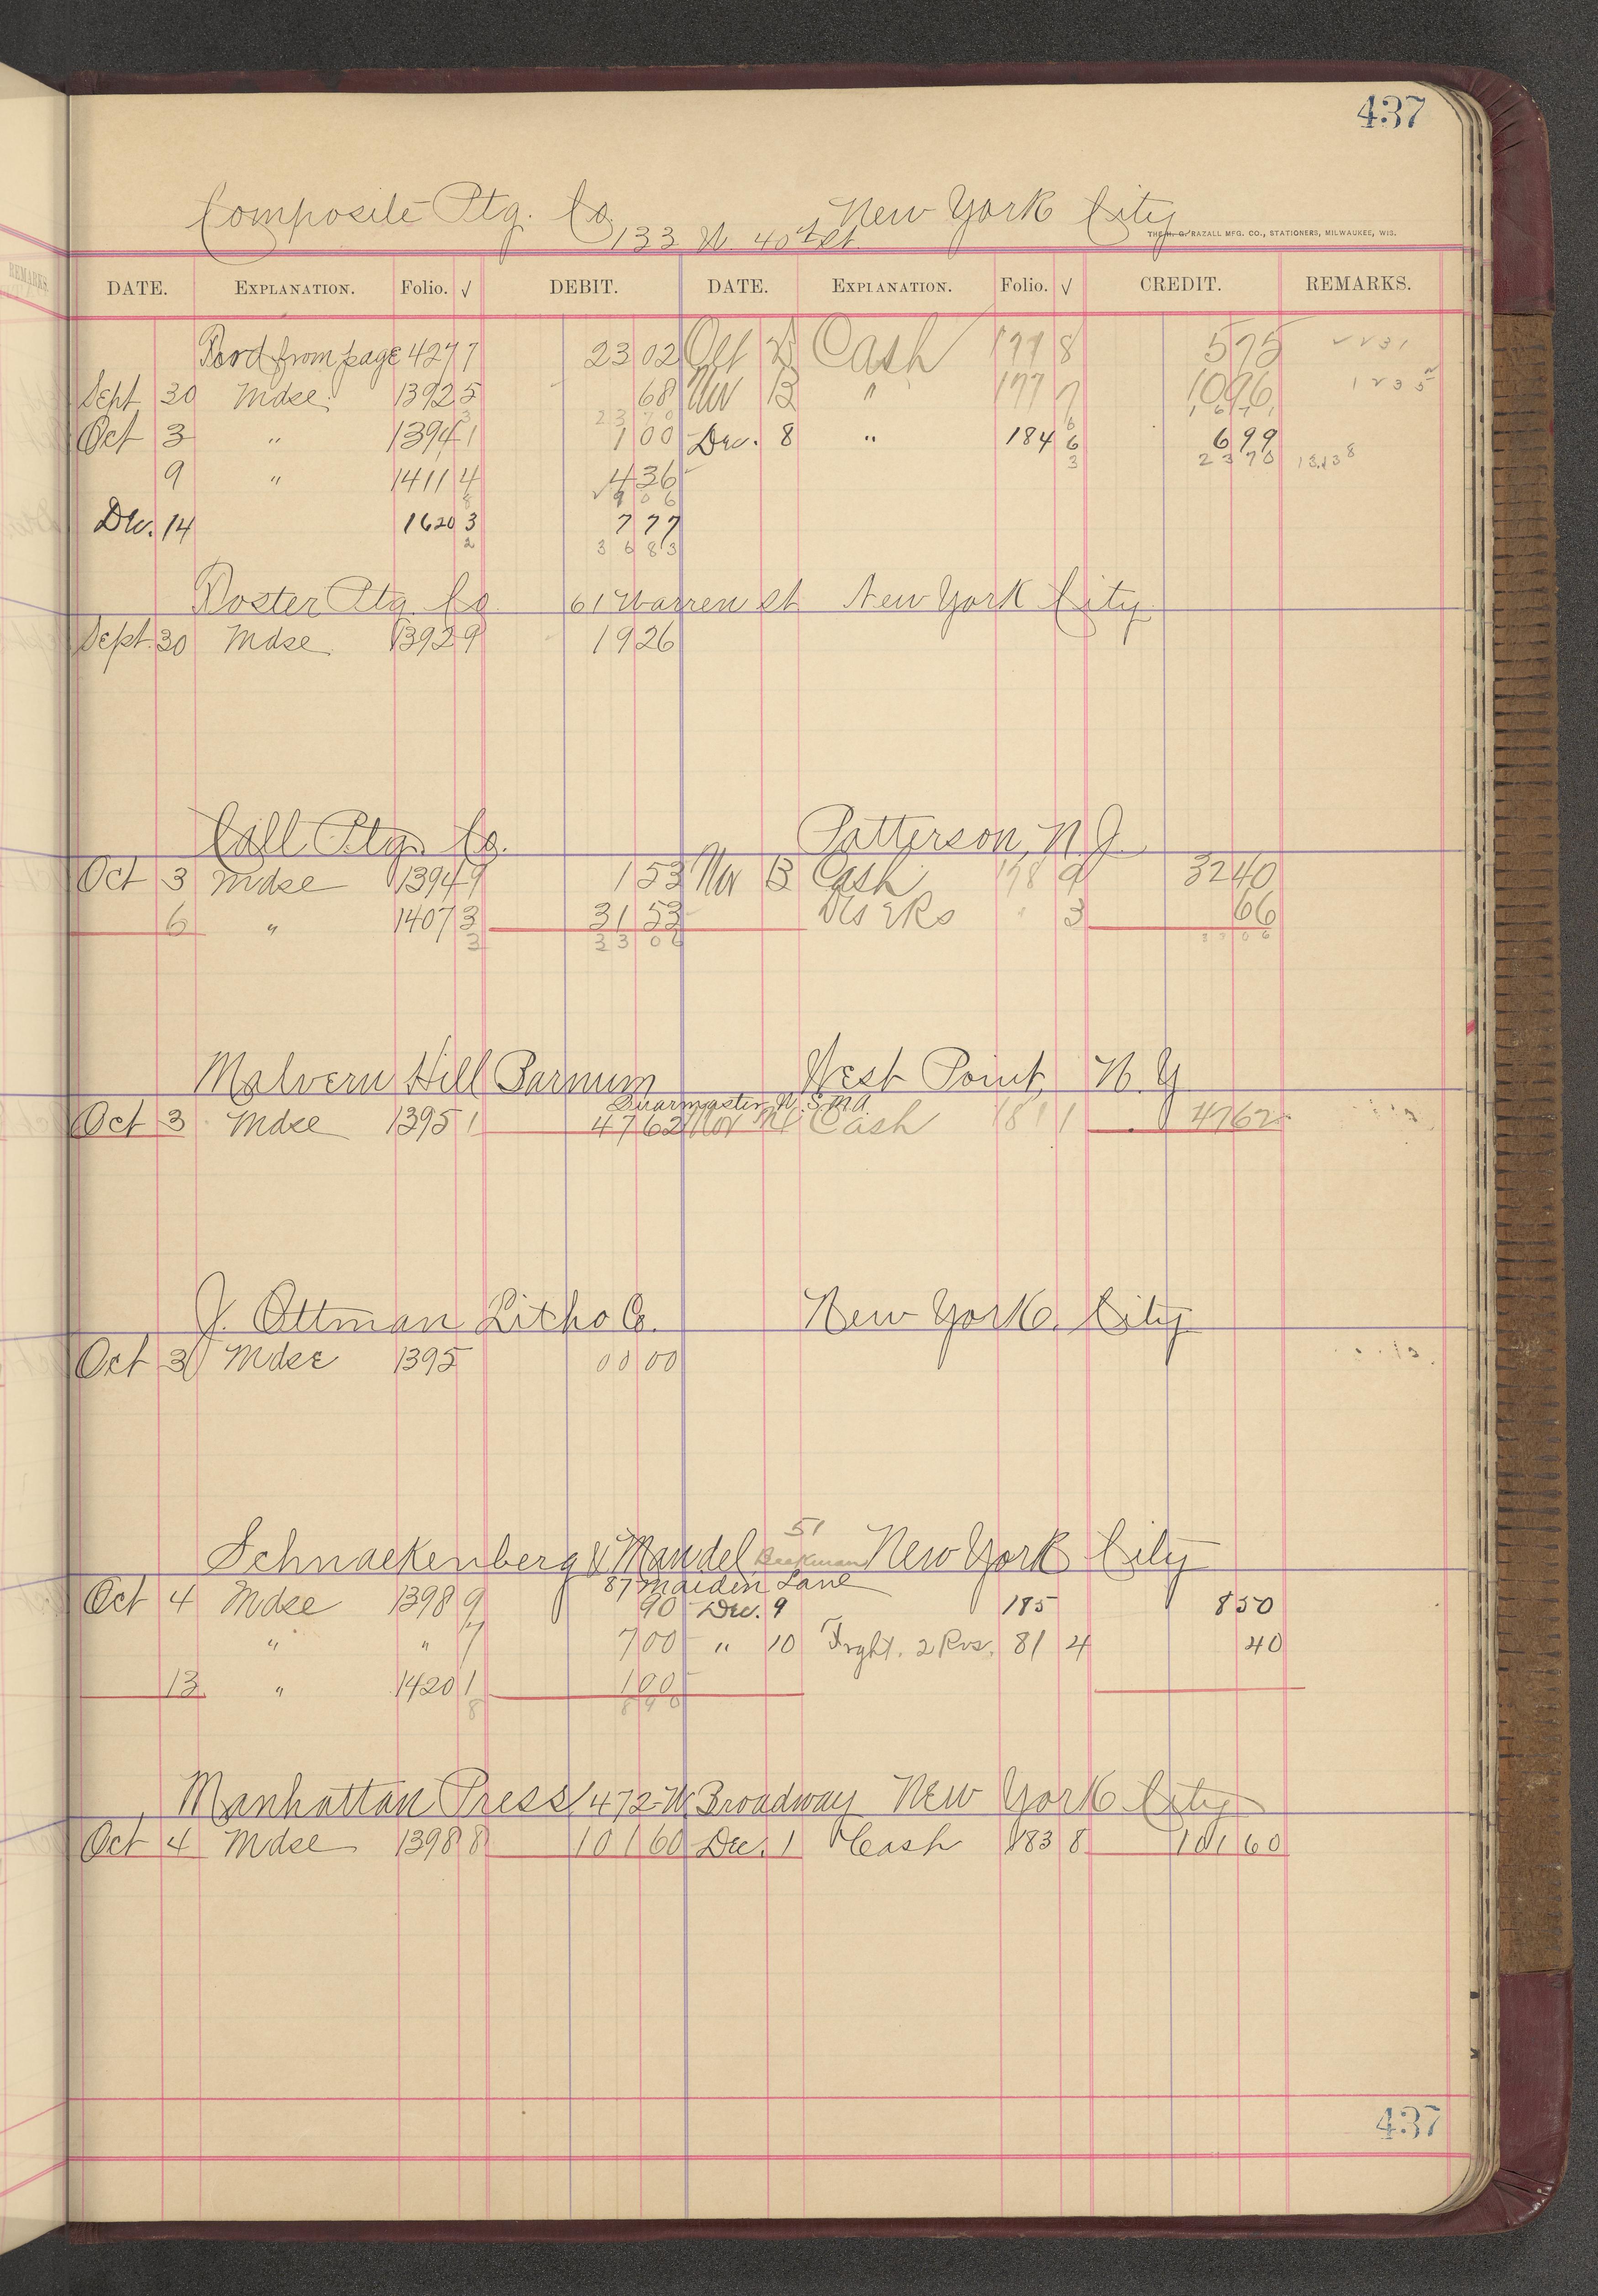 437
Composite Ptg. Co. New York City
133 W. 40th St.
THE H. G. RAZALL MFG. CO., STATIONERS, MILWAUKEE, WIS.
DATE. EXPLANATION. Folio. √ DEBIT. DATE. EXPLANATION. Folio. √ CREDIT. REMARKS.
Ford from page 427 7 23 02 Cash 177 8 5 75
Sept 30 Mdse. 1392 5 68 Nov 13 " 177 7 10 96
23 70
Oct 3 " 1394 1 1 00 Dec. 8 " 184 6 6 99
23 70
9 " 1411 4 4 36
9 06
Dec. 14 1620 3 7 77
36 83
Poster Ptg. Co. 61 Warren St New York City
Sept. 30 Mdse. 1392 9 19 26
Call Ptg. Co. Patterson, N.J.
Oct 3 Mdse 1394 9 1 53 Nov 13 Cash 178 9 32 40
6 " 1407 3 31 53 " 3 66
33 06 33 06
Malvern Hill Barnum West Point, N.Y
Quarmaster U.S.M.A.
Oct 3 Mdse 1395 1 47 62 Nov Cash 181 1 47 62
J. Ottman Litho Co. New York City
Oct 3 Mdse 1395 00 00
51
Schnackenberg & Mandel Beekman New York City
87 Maiden Lane
Oct 4 Mdse 1398 9 90 Dec. 9 185 8 50
" " 7 7 00 " 10 Frght. 2 Rvs. 81 4 40
13 " 1420 1 1 00
8 90
Manhattan Press 472 W. Broadway New York City
Oct 4 Mdse 1398 8 101 60 Dec. 1 Cash 183 8 101 60
437